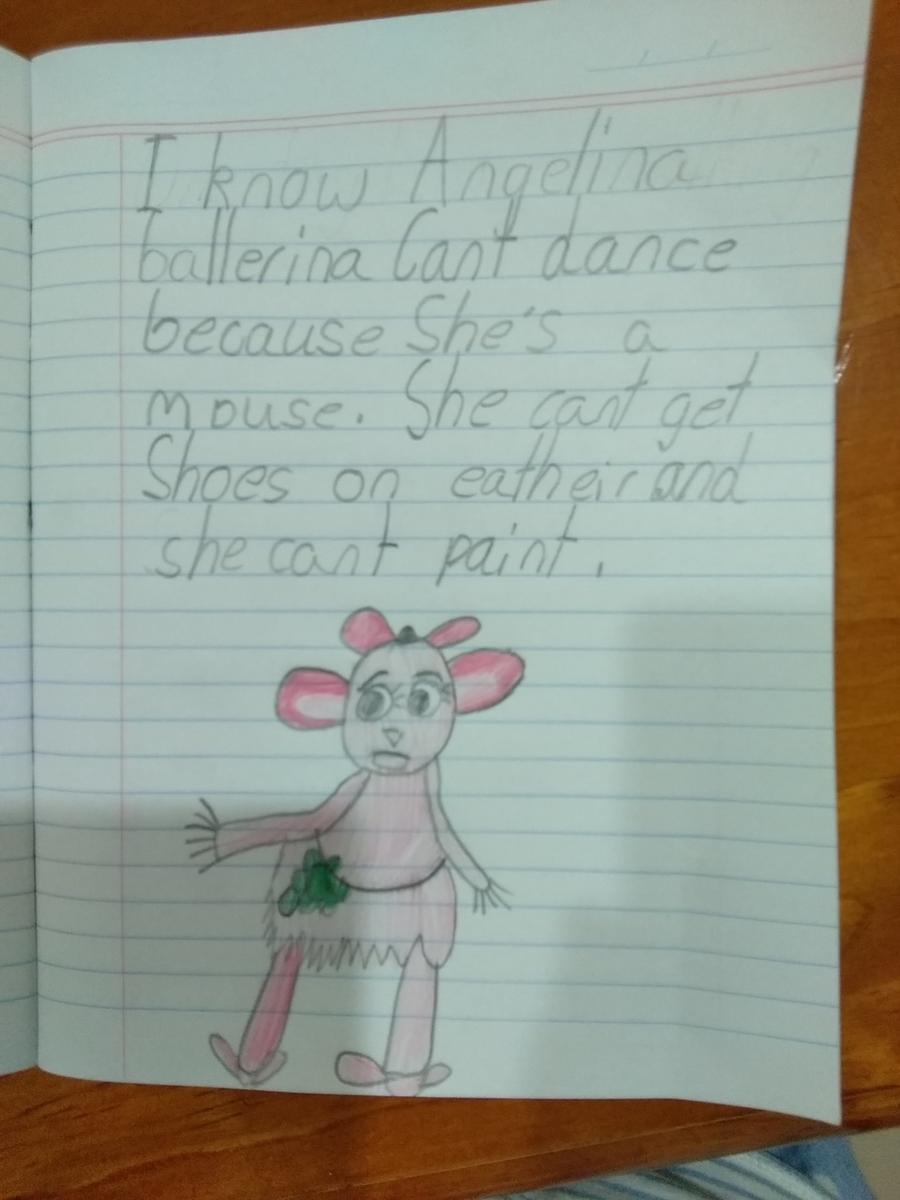 I know Angelina
ballerina Can't dance
because She's a
mouse. She can't get
Shoes on eatheir and
she cant paint.